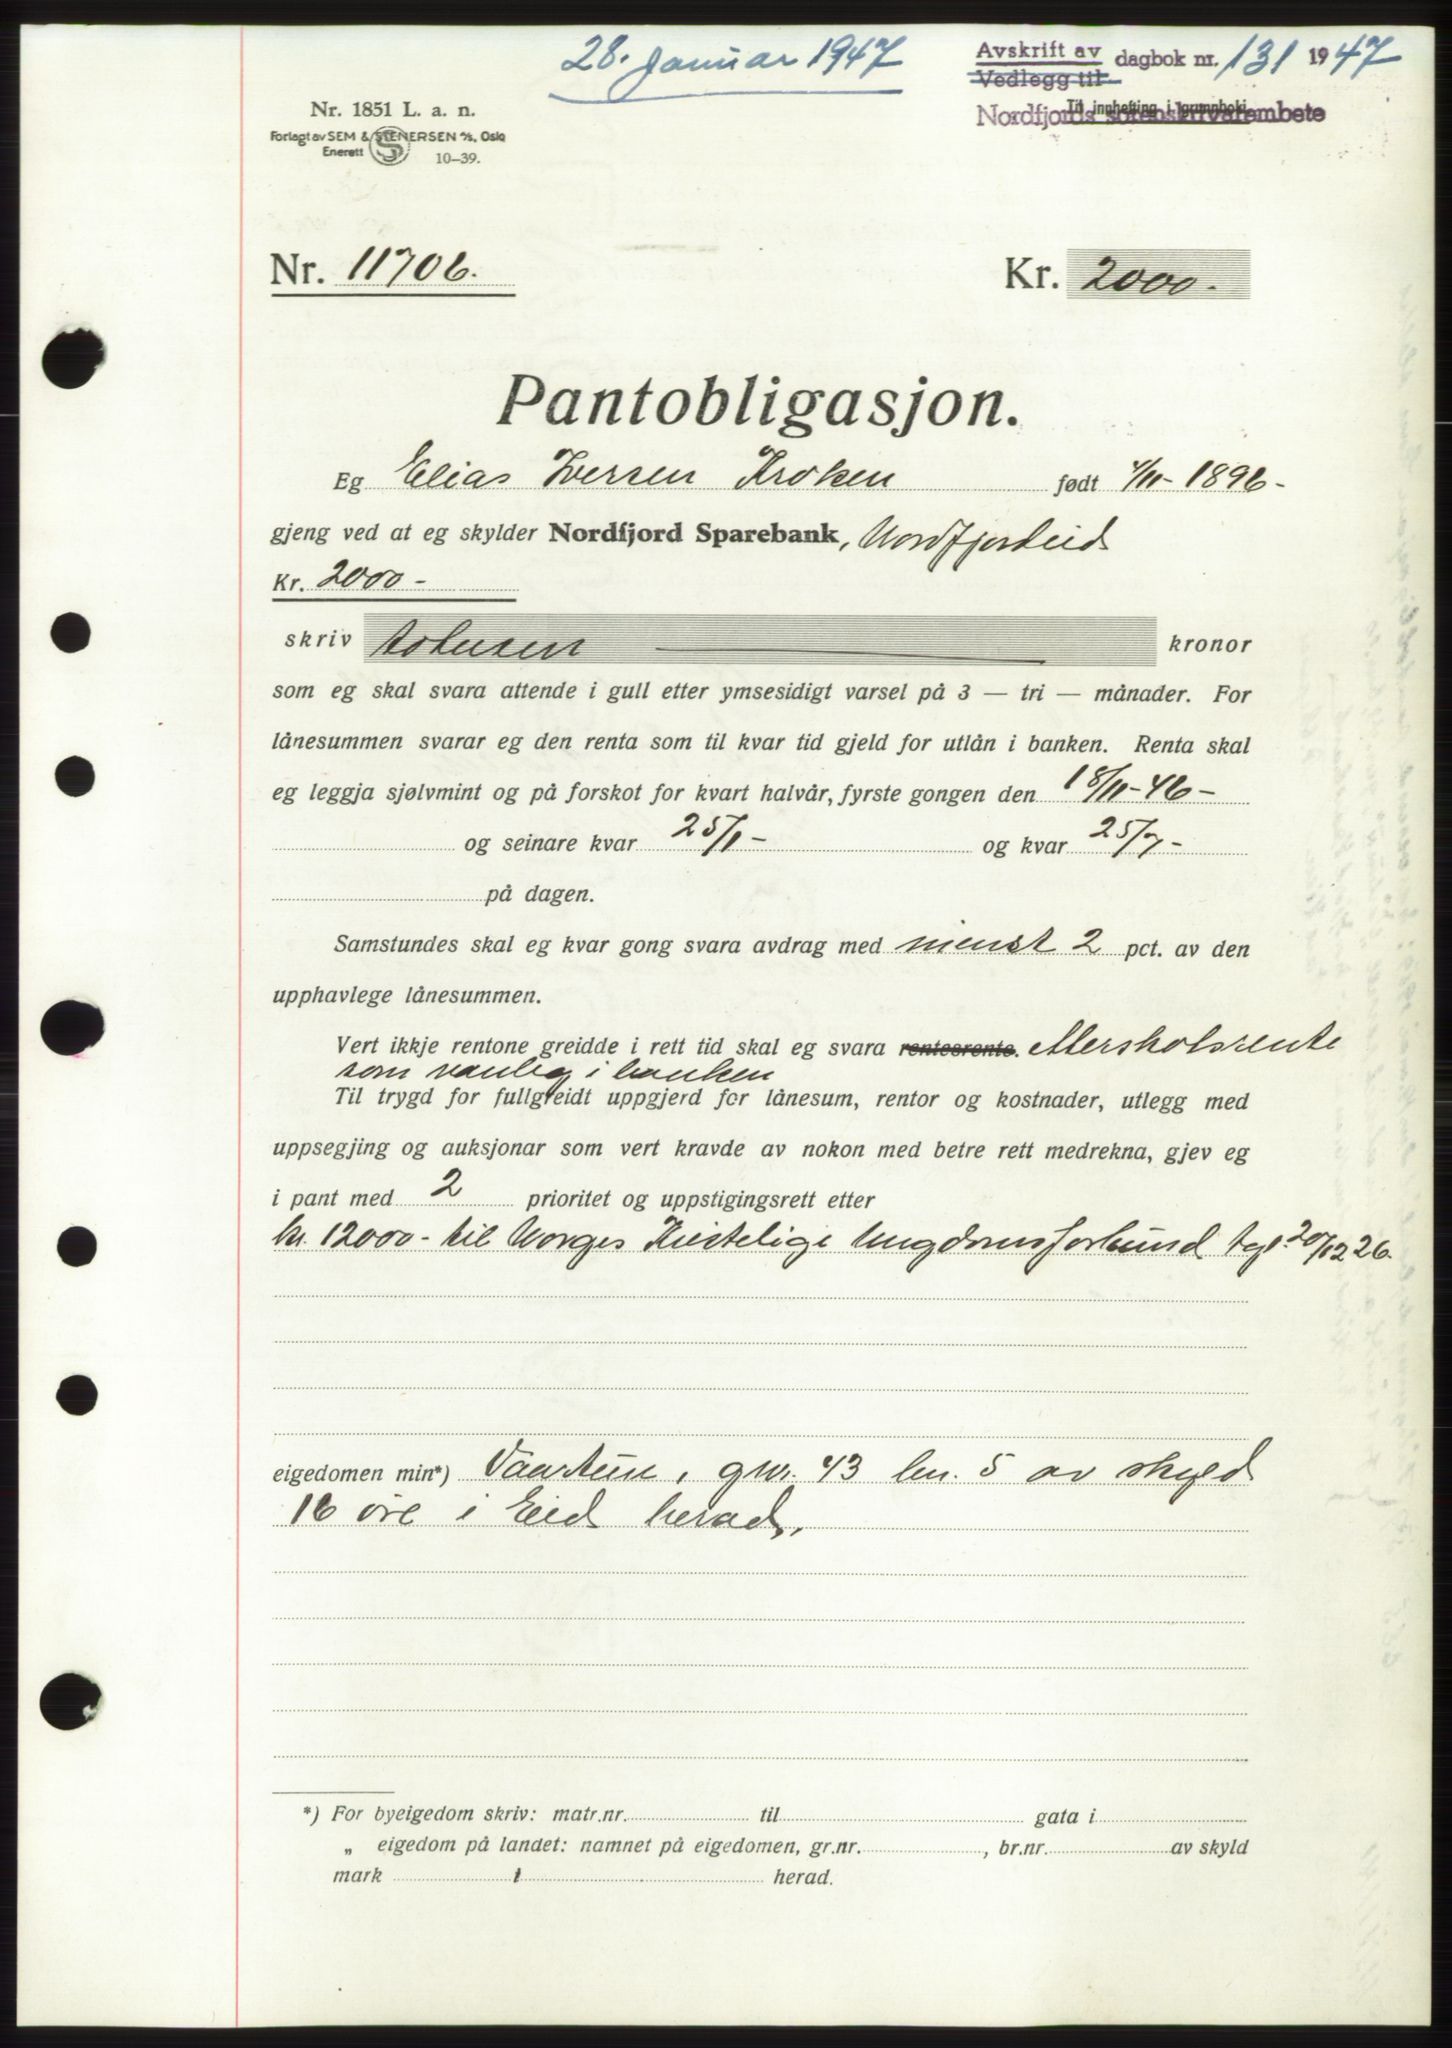 28. Januar 1947
Avskrift av dagbok nr. 131 1947
Vedlegg til
Til innhefting i grunnboki
Nordfjords sorenskrivarembete
Nr. 1851 L. a. n.
Forlagt av SEM & STENERSEN A/S, Oslo
Enerett 10-39.
Nr. 11706.
Kr. 2000.-
Pantobligasjon.
Eg Elias Iversen Kroken født 4/11-1896-
gjeng ved at eg skylder Nordfjord Sparebank, Nordfjordeid
Kr. 2000-
skriv totusen kronor
som eg skal svara attende i gull etter ymsesidigt varsel på 3 — tri — månader. For
lånesummen svarar eg den renta som til kvar tid gjeld for utlån i banken. Renta skal
eg leggja sjølvmint og på forskot for kvart halvår, fyrste gongen den 18/11-46-
og seinare kvar 25/1- og kvar 25/7-
på dagen.
Samstundes skal eg kvar gong svara avdrag med minst 2 pct. av den
upphavlege lånesummen.
Vert ikkje rentone greidde i rett tid skal eg svara rentesrente. Etterskotsrente
som vanleg i banken
Til trygd for fullgreidt uppgjerd for lånesum, rentor og kostnader, utlegg med
uppsegjing og auksjonar som vert kravde av nokon med betre rett medrekna, gjev eg
i pant med 2 prioritet og uppstigingsrett etter
kr. 12000- til Norges Kristelige Ungdomsforbund tgl. 20/12 26.
eigedomen min*) Vaartun, gnr. 43 bn. 5 av skyld
16 øre i Eid herad.
*) For byeigedom skriv: matr.nr. til gata i
„ eigedom på landet: namnet på eigedomen, gr.nr. , br.nr. av skyld
mark i herad.